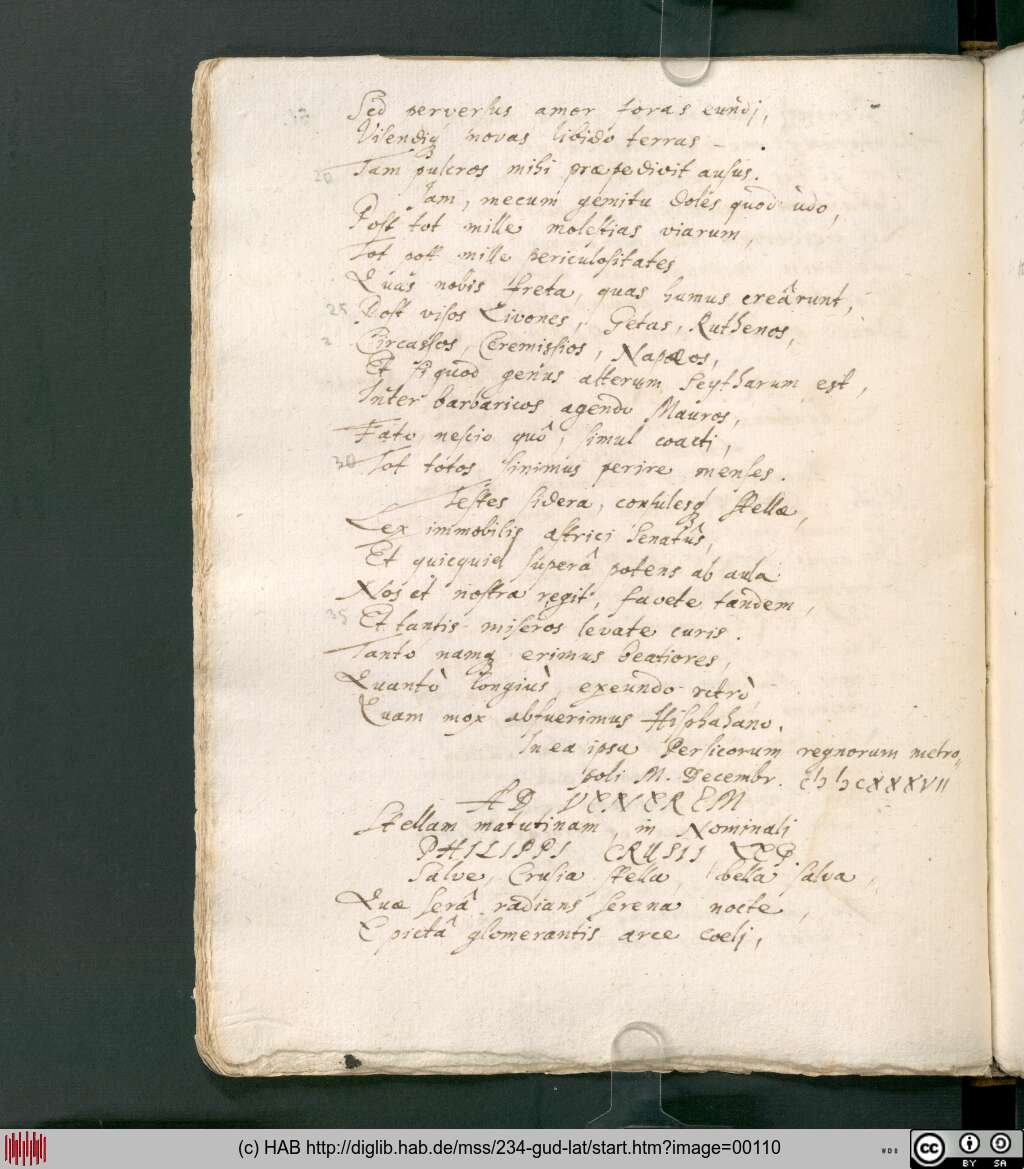 Sed perversus amor foras eundj,
Visendiq novas libido terras
20 Tam pulcros mihi præpedivit ausus.
Jam, mecum gemitu doles quod udo,
Post tot mille molestias viarum,
Tot post mille periculositates
Quas nobis freta, quas humus creârunt,
25 Post visos Livones, Getas, Ruthenos,
Circassos, Ceremissios, Napæos,
Et si quod genus alterum Scytharum est,
Inter barbaricos agendo Mauros,
Fato, nescio quô, simul coacti,
30 Tot totos sinimus perire menses.
Testes sidera, consulesq stellæ,
Lex immobilis astrici Senatûs,
Et quicquid superâ potens ab aula
Nos et nostra regit, favete tandem,
35 Et tantis miseros levate curis.
Tanto namq erimus beatiores,
Quantò longiùs, exeundo retrò
Quam mox abfuerimus Hisphahano.
In ea ipsa Persicorum regnorum metro„
poli M. Decembr. CIƆ IƆCXXXVII
AD VENEREM
Stellam matutinam, in Nominali
PHILIPPI CRUSII LEG.
Salve, Crusia stella, bella salva,
Quæ serâ radians serena nocte,
E pictâ glomerantis arce coelj,
(c) HAB http://diglib.hab.de/mss/234-gud-lat/start.htm?image=00110
WDB
cc BY SA